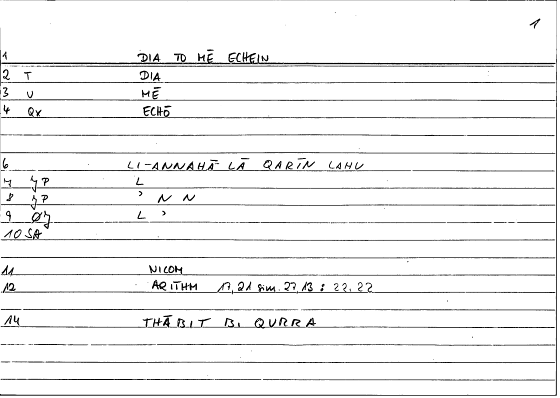 1
1 DIA TO MĒ ECHEIN
2 T DIA
3 U MĒ
4 Qx ECHŌ
6 LI-ANNAHĀ LĀ QARĪN LAHU
7 ȜP L
8 ȜP ʾ N N
9 ØȜ L ʾ
10 SA
11 NICOM
12 ARITHM 17,21 sim. 27,13 ; 22,22
14 THĀBIT B. QURRA